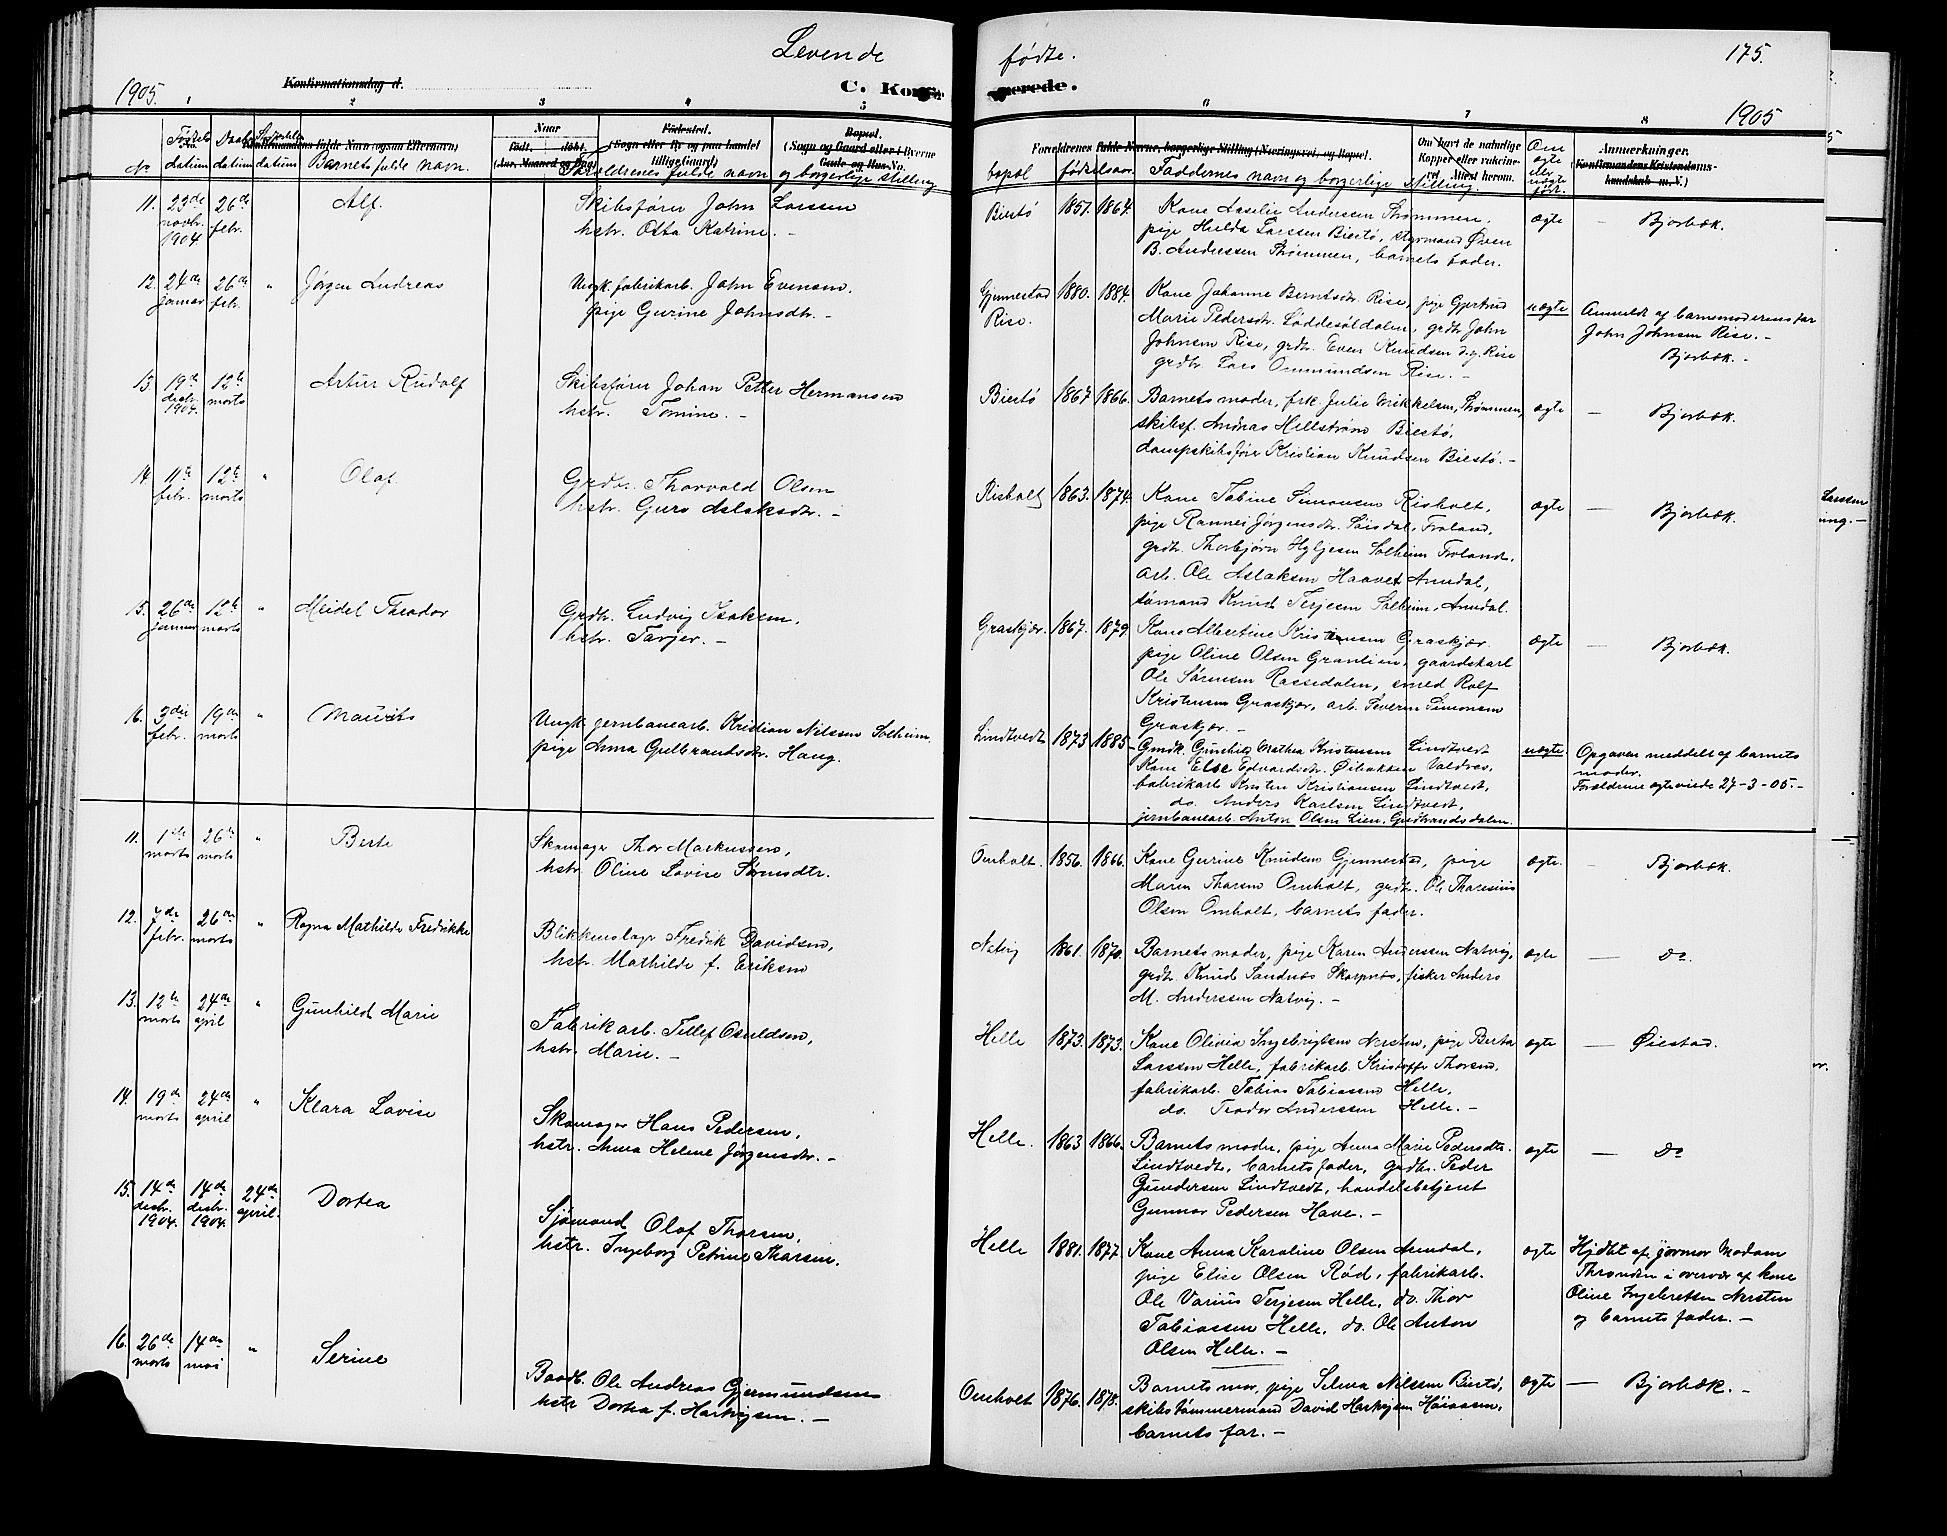 Levende
fødte.
175.
1905.
Konfirmationsdag d.
C. Konfir
merede.
1905
1 2 3 4 5
6 7 8
Naar
Fødested.
Bopæl.
født.
døbt.
(Aar, Maaned og Dag)
(Sogn eller By og paa Landet
tillige Gaard)
(Sogn og Gaard eller i Byerne
Gade og Hus-No.
fulde Navn (ogsaa Efternavn)
No
Fødsels
datum
Daabs
datum
datum
Barnets fulde navn.
Forældrenes fulde navn og borgerlige stilling
Forældrenes fulde Navne, borgerlige Stilling (Næringsvei, og Bopæl.
bopæl
fødselsaar.
Faddernes navn og borgerlige stilling.
Om havt de naturlige
Kopper eller vaccine-
ret. Attest herom.
Om
ægte
eller
uægte
før.
Anmærkninger.
(Konfirmandens Kristendoms-
kundskab m. V.)
11. 23de novbr. 1904 26de febr. Alf.
Skibsfører John Larsen
hstr. Osta Katrine. -
Biestø 1857. 1864.
Kone Aaselie Anderssen Strømmen,
pige Hulda Larssen Biestø, styrmand Øven
B. Anderssen Strømmen, barnets fader.
ægte — Bjorbæk.
12. 24de januar 26de febr. " Jørgen Andreas
Ungk. fabrikarb. John Evensen,
pige Gurine Johnsdtr. -
Gjennestad
Rise.
1880. 1884.
Kone Johanne Berntsdtr. Rise, pige Gjertrud
Marie Pedersdtr. Løddesøldalen, grdbr. John
Johnsen Rise, grdbr. Even Knudsen d.y. Rise
grdbr. Lars Ommundsen Rise. -
uægte
Anmeldt af barnemoderens far
John Johnsen Rise. -
Bjorbæk. -
13 19de desbr. 1904. 12te marts Artur Rudolf
Skibsfører Johan Petter Hermansen
hstr. Tomine. -
Biestø 1867 1866.
Barnets moder, frk. Julie Mikkelsen, Strømmen,
skibsf. Andreas Hellstrøm Biestø,
dampskibsfører Kristian Knudsen Biestø. -
ægte — Bjorbæk.
14 11te febr. 12te marts " Olaf.
Grdbr. Thorvald Olsen
hstr. Guro Aslaksdtr. -
Risholt 1863. 1874.
Kone Tabine Simonsen Risholt,
pige Rannei Jørgensdtr. Sørsdal, Froland,
grdbr. Thorbjørn Hyljesen Solheim Froland.
arb. Ole Aslaksen Haavet Arendal,
tømand Knud Terjesen Solheim, Arendal.
ægte — Bjorbæk.
15. 26de januar 12te marts " Meidel Theodor
Grdbr. Ludvig Isaksen,
hstr. Tarjer. -
Graskjær. 1867. 1879.
Kone Albertine Kristensen Graskjær.
pige Oline Olsen Grantien, gaardskarl
Ole Sørensen Rassedalen, smed Rolf
Kristensen Graskjær, arb. Severin Simonsen
Graskjær. -
ægte — Bjorbæk.
16. 3die febr. 19de marts " Maurits
Ungk. jernbanearb. Kristian Nilssen Solheim.
pige Anna Gulbrandsdtr. Haug.
Lindtvedt 1873 1885
Gmdk. Gunhild Mathea Kristensen Lindtvedt
Kone Else Edvardsdtr. Øibakken Valdres,
fabrikarb Kristen Kristiansen Lindtvedt,
do. Anders Karlsen Lindtvedt,
jernbanearb. Anton Olsen Lien, Gudbrandsdalen.
uægte
Opgaven meddelt af barnets
moder.
Forældrene ægteviede 27-3-05. -
11. 1ste marts 26de marts " Berte
Skomager Thor Markussen,
hstr. Oline Lovise Sørensdtr.
Omholt. 1856. 1866.
Kone Gurine Knudsen Gjennestad, pige
Maren Tharsen Omholt, grdbr. Ole Tharesius
Olsen Omholt, barnets fader.
ægte. — Bjorbæk.
12. 7de febr. 26de marts " Ragna Mathilde Fredrikke
Blikkenslager Fredrik Davidsen,
hstr. Mathilde f. Eriksen
Natvig 1861. 1870.
Barnets moder, pige Karen Anderssen Natvig,
grdbr. Knud Sandnes Skarpnes, fisker Anders
M. Anderssen Natvig. -
ægte — Do.
13. 12te marts 24de april " Gunhild Marie
Fabrikarb. Tellef Osuldsen,
hstr. Marie. -
Helle 1873. 1873.
Kone Olivia Ingebrigtsen Nersten, pige Berta
Larssen Helle, fabrikarb. Kristoffer Thorsen,
fabrikarb. Tobias Tobiassen Helle,
do. Teodor Anderssen Helle. -
ægte — Øiestad.
14. 19de marts 24de april " Klara Lovise
Skomager Hans Pedersen,
hstr. Anna Helene Jørgensdtr. -
Helle. 1863 1866.
Barnets moder, pige Anna Marie Pedersdtr.
Lindtvedt, barnets fader, grdbr. Peder
Gundersen Lindtvedt, handelsbetjent
Gunnar Pedersen Have. -
ægte — Do
15. 14de desbr. 1904. 14de desbr. 1904. 24de april. Dortea
Sjømand Olaf Thorsen,
hstr. Ingeborg Petrine Tharsen.
Helle 1881. 1877.
Kone Anna Karoline Olsen Arendal,
pige Elise Olsen Rød, fabrikarb.
Ole Varius Terjesen Helle, do. Thor
Tobiassen Helle, do. Ole Anton
Olsen Helle. -
ægte
Hjdbt af jormor Madam
Thronden i overvær af kone
Oline Ingebretsen Nersten
og barnets fader. -
16. 26de marts 14de mai " Serine
Baadb. Ole Andreas Gjermundsen
hstr Dortea f. Hartvigsen. -
Omholt 1876. 1878.
Barnets mor, pige Selma Nilssen Biestø,
skibstømmermand David Hartvigsen Høiaasen,
barnets far. -
ægte — Bjorbæk. -
Larssen